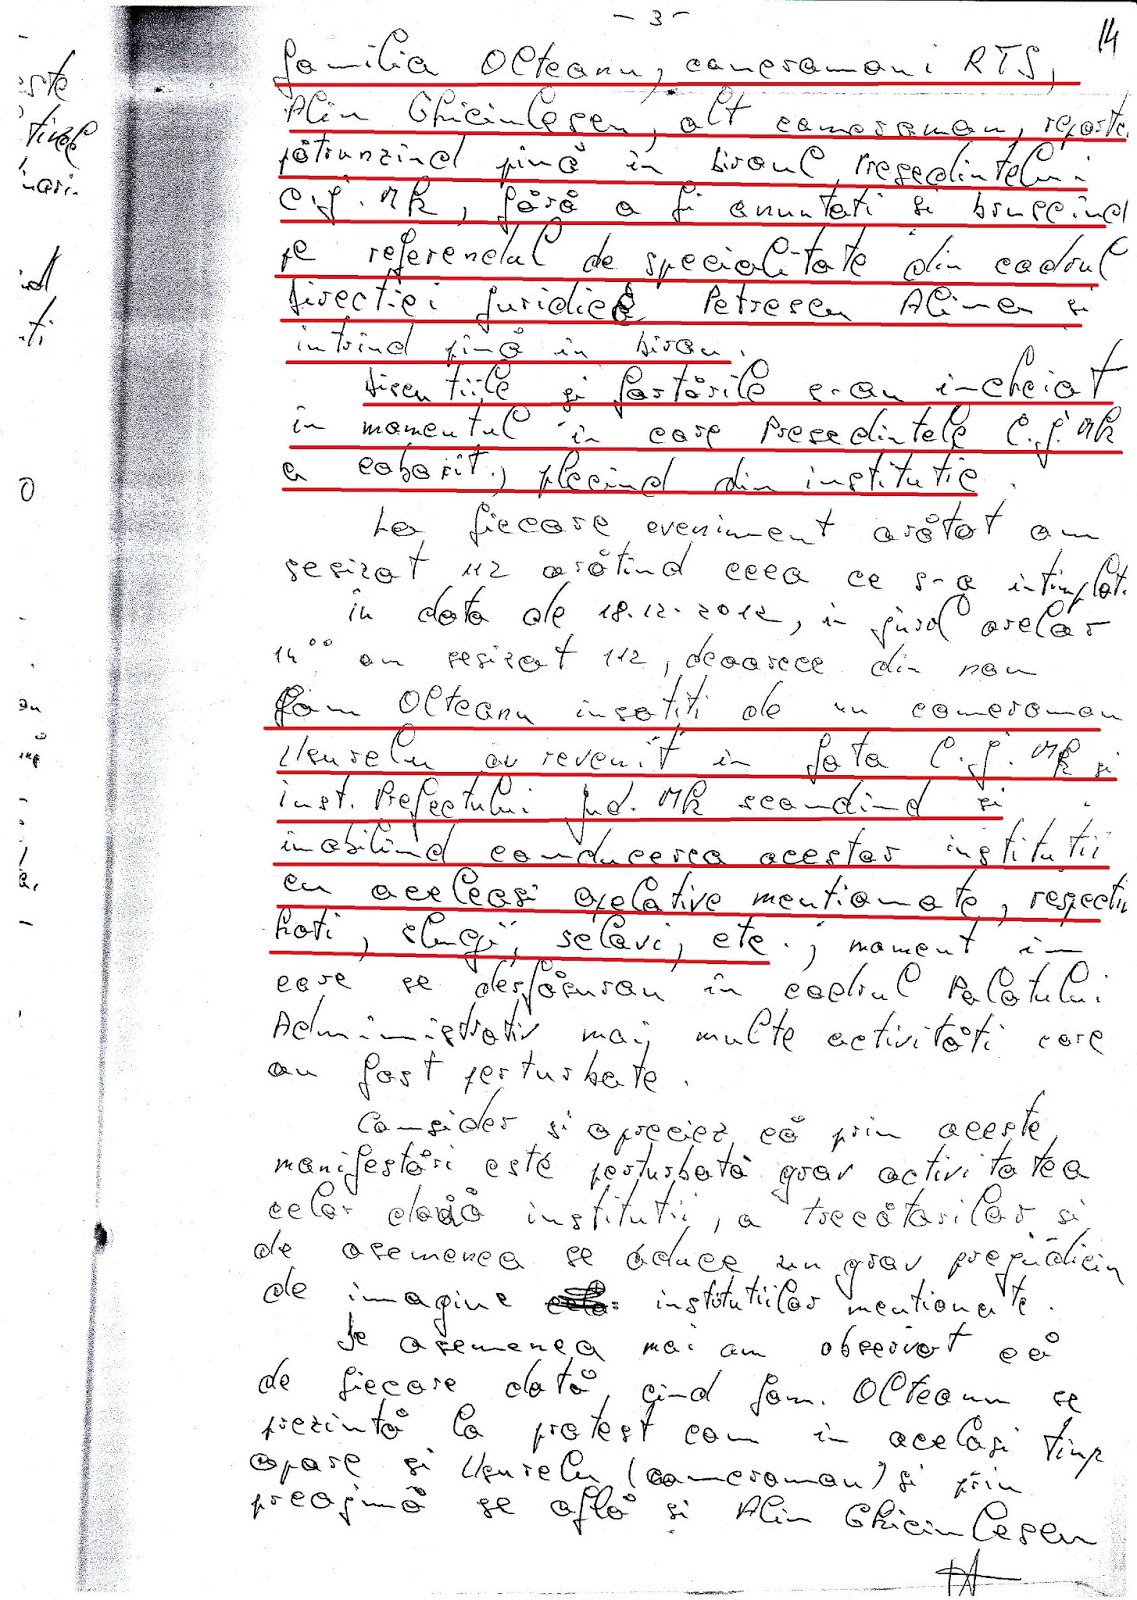 - 3 -
14
familia Olteanu, cameramani RTS,
Alin Ghiciulescu, alt cameraman, reporte
pătrunzind pină în biroul Președintelui
C.J. MH, fără a fi anuntati si bruscind
pe referendul de specialitate din cadrul
Directiei Juridice Petrescu Alina si
intrind pină in birou.
Discutiile si fortările s-au incheiat
în momentul în care Presedintele C.J. MH
a coborît, plecind din institutie.
La fiecare eveniment arătat am
sesizat 112 arătind ceea ce s-a intimplat.
in data de 18.12.2012, in jurul orelor
14⁰⁰ am sesizat 112, deoarece din nou
fam Olteanu insotiti de un cameraman
Usurelu au revenit in fata C.J. MH si
inst. Prefectului Jud. MH scandind si
imobilind conducerea acestor institutii
cu aceleasi apelative mentionate, respectiv
hoti, slugi, sclavi, etc.; moment in
care se desfăsurau în cadrul Palatului
Administrativ mai multe activităti care
au fost perturbate.
Consider si apreciez că prin aceste
manifestări este perturbată grav activitatea
celor două institutii, a trecătorilor si
de asemenea se aduce un grav prejudiciu
de imagine institutiilor mentionate.
De asemenea mai am observat că
de fiecare dată, cind fam. Olteanu se
prezintă la protest cam in acelasi timp
apare si Usurelu (cameraman) si prin
preajmă se află si Alin Ghiciulescu
este